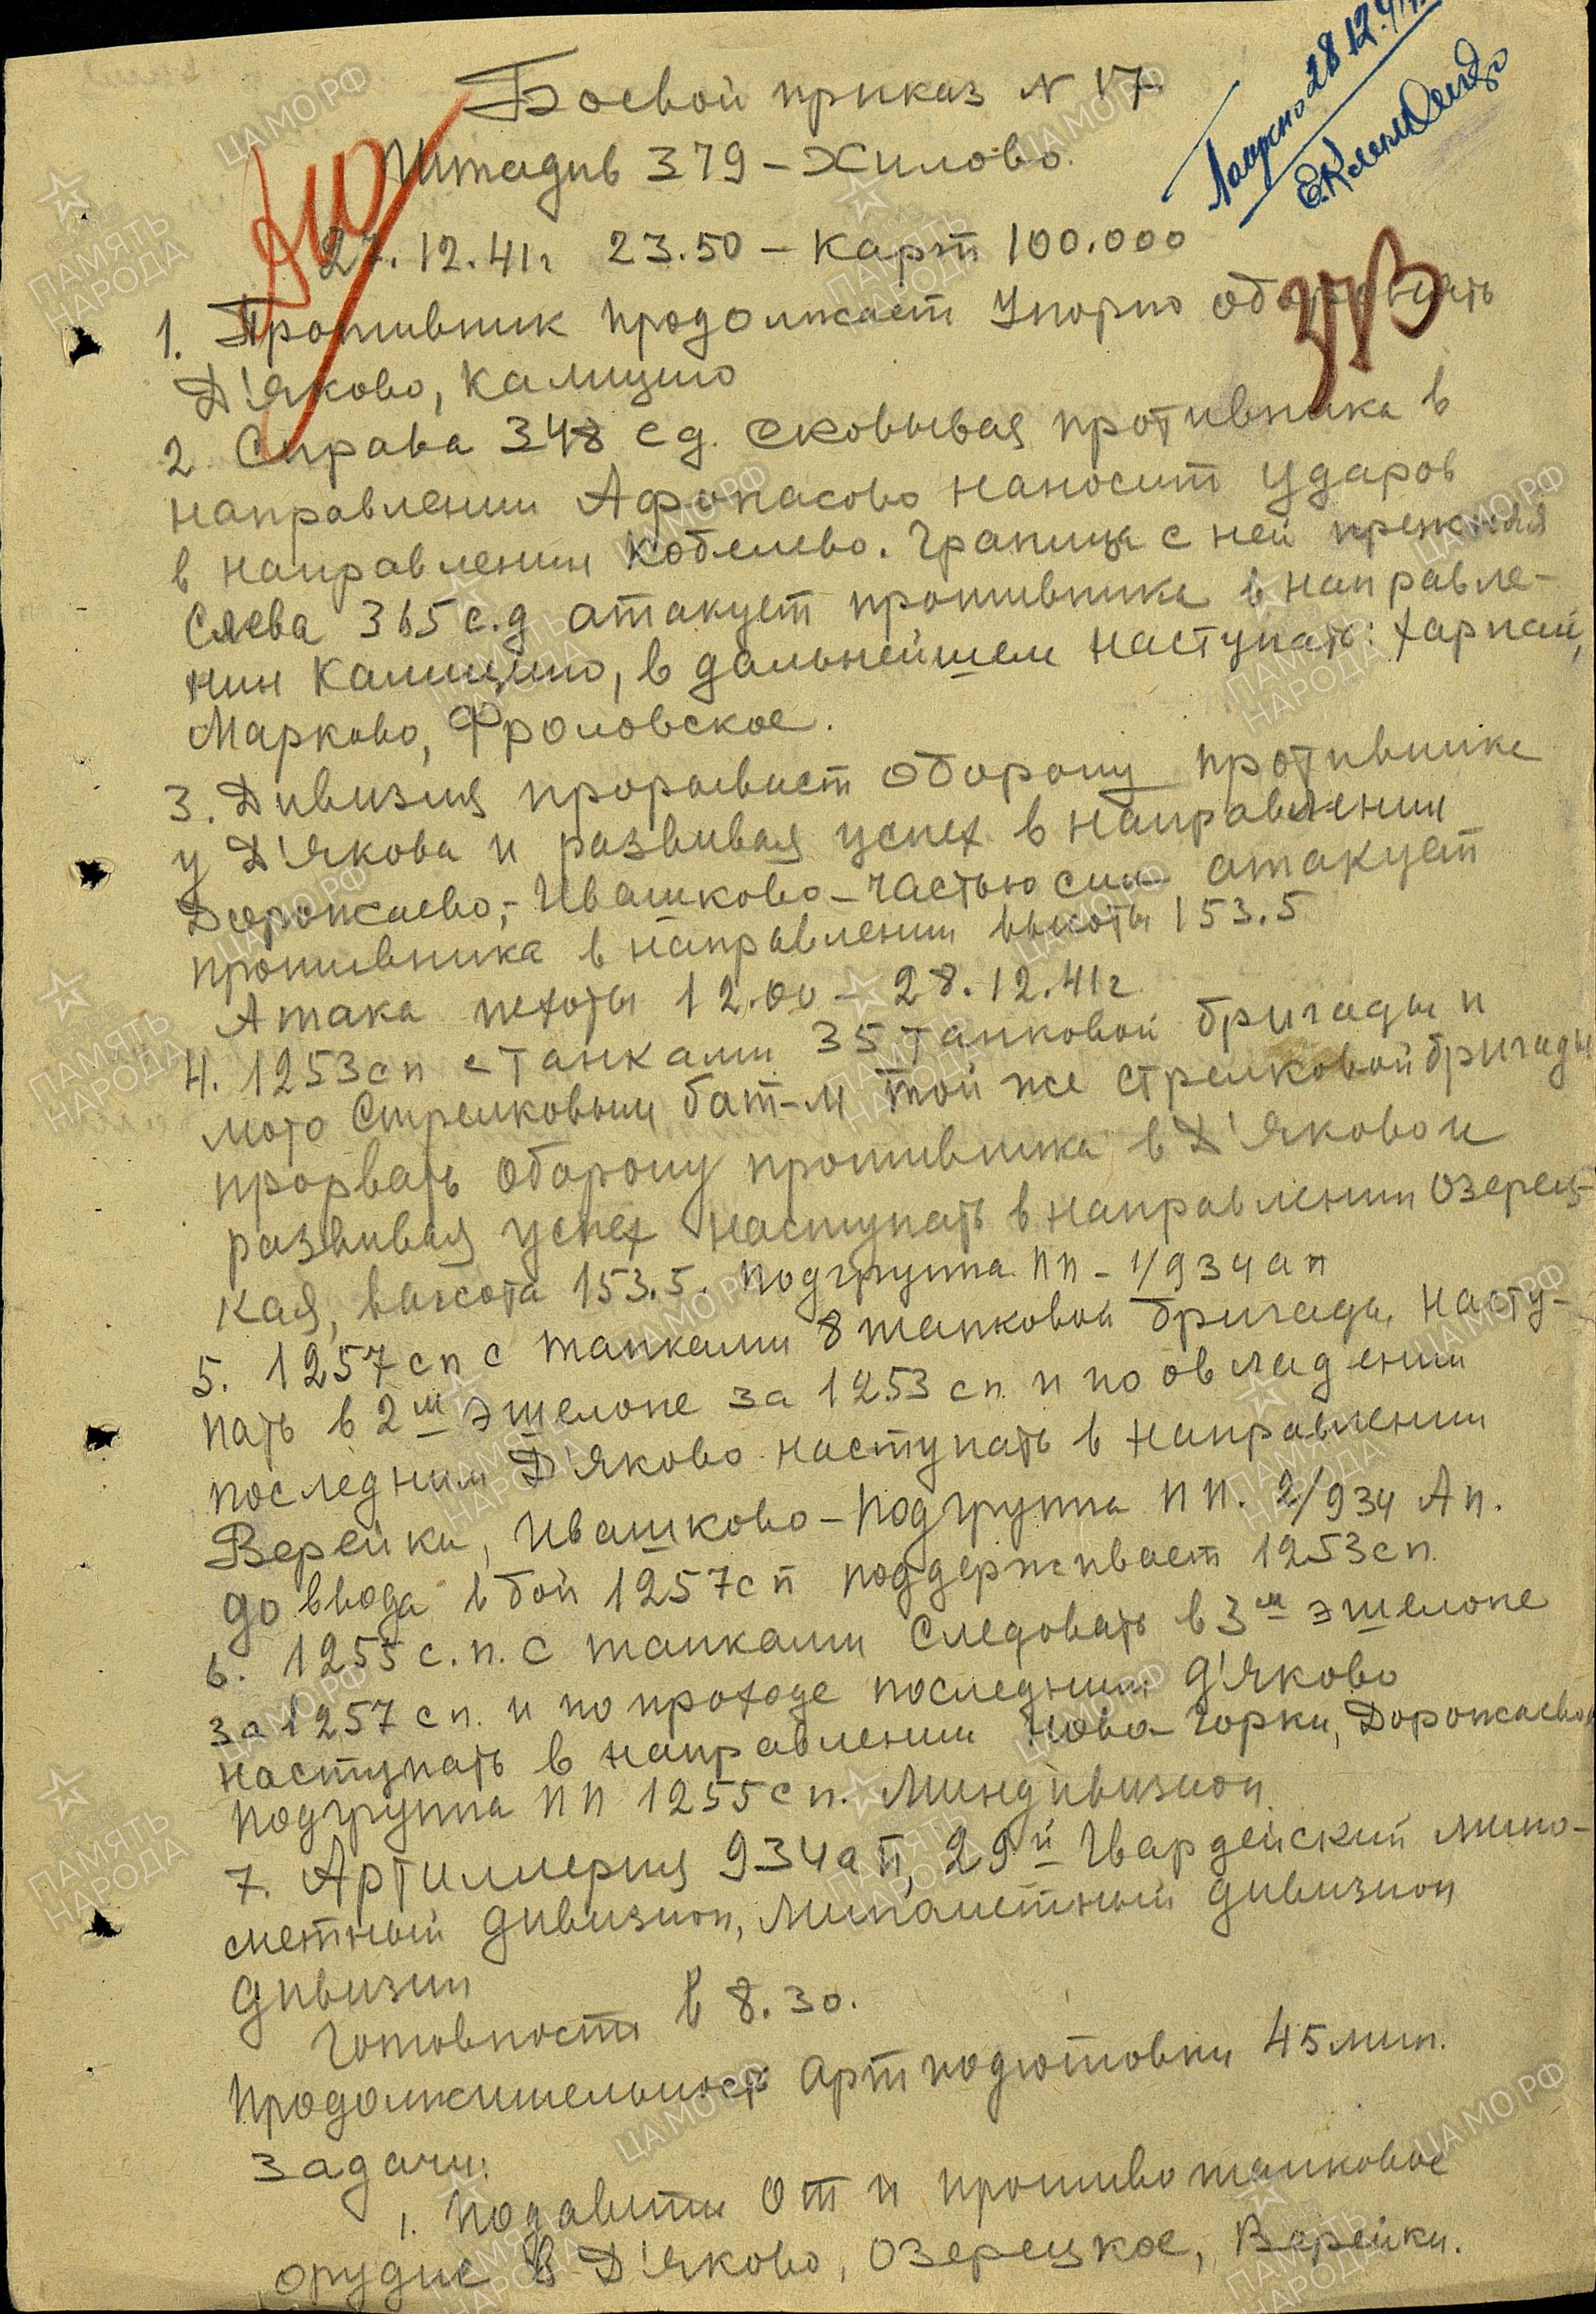 Боевой приказ № 17
Штадив 379 – Хилово.
27.12.41г 23.50 – карт 100.000
28.12.41г.
1. Противник продолжает упорно оборонять
Д'яково, Калицино
2 Справа 348 сд. сковывая противника в
направлении Афонасово наносит ударов
в направлении Кобелево. Граница с ней прежняя
Слева 365 с.д атакует противника в направле-
нии Калицино, в дальнейшем наступать: Харпай,
Марково, Фроловское.
3. Дивизия прорывает оборону противника
у Д'якова и развивая успех в направлении
Дорожаево, – Ивашково – частью сил атакует
противника в направлении высоты 153.5
Атака пехоты 12.00 – 28.12.41г
4. 1253сп с танками 35 танковой бригады и
мото Стрелковым бат-м той же стрелковой бригады
прорвать оборону противника в Д'яково и
развивая успех наступать в направлении Озерец-
кая, высота 153.5. Подгруппа ПП – 1/934 ап
5. 1257 сп с танками 8 танковой бригады насту-
пать в 2м эшелоне за 1253 сп и по овладении
последним Д'яково наступать в направлении
Верейки, Ивашково – подгруппа ПП. 2/934 Ап.
до ввода в бой 1257сп поддерживает 1253сп
6. 1255 с.п. с танками следовать в 3м эшелоне
за 1257 сп. и по проходе последним Д'яково
наступать в направлении Ново-Горки, Дорожаево
подгруппа ПП 1255 сп. Миндивизион
7. Артиллерия 934 ап, 29й Гвардейский мино-
метный дивизион, Минометный дивизион
дивизии
Готовность в 8.30.
Продолжительность Артподготовки 45 мин.
Задачи:
1. подавить От и противотанковое
орудие в Д'яково, Озерецкое, Верейки.
ЦАМО РФ
ПАМЯТЬ
НАРОДА